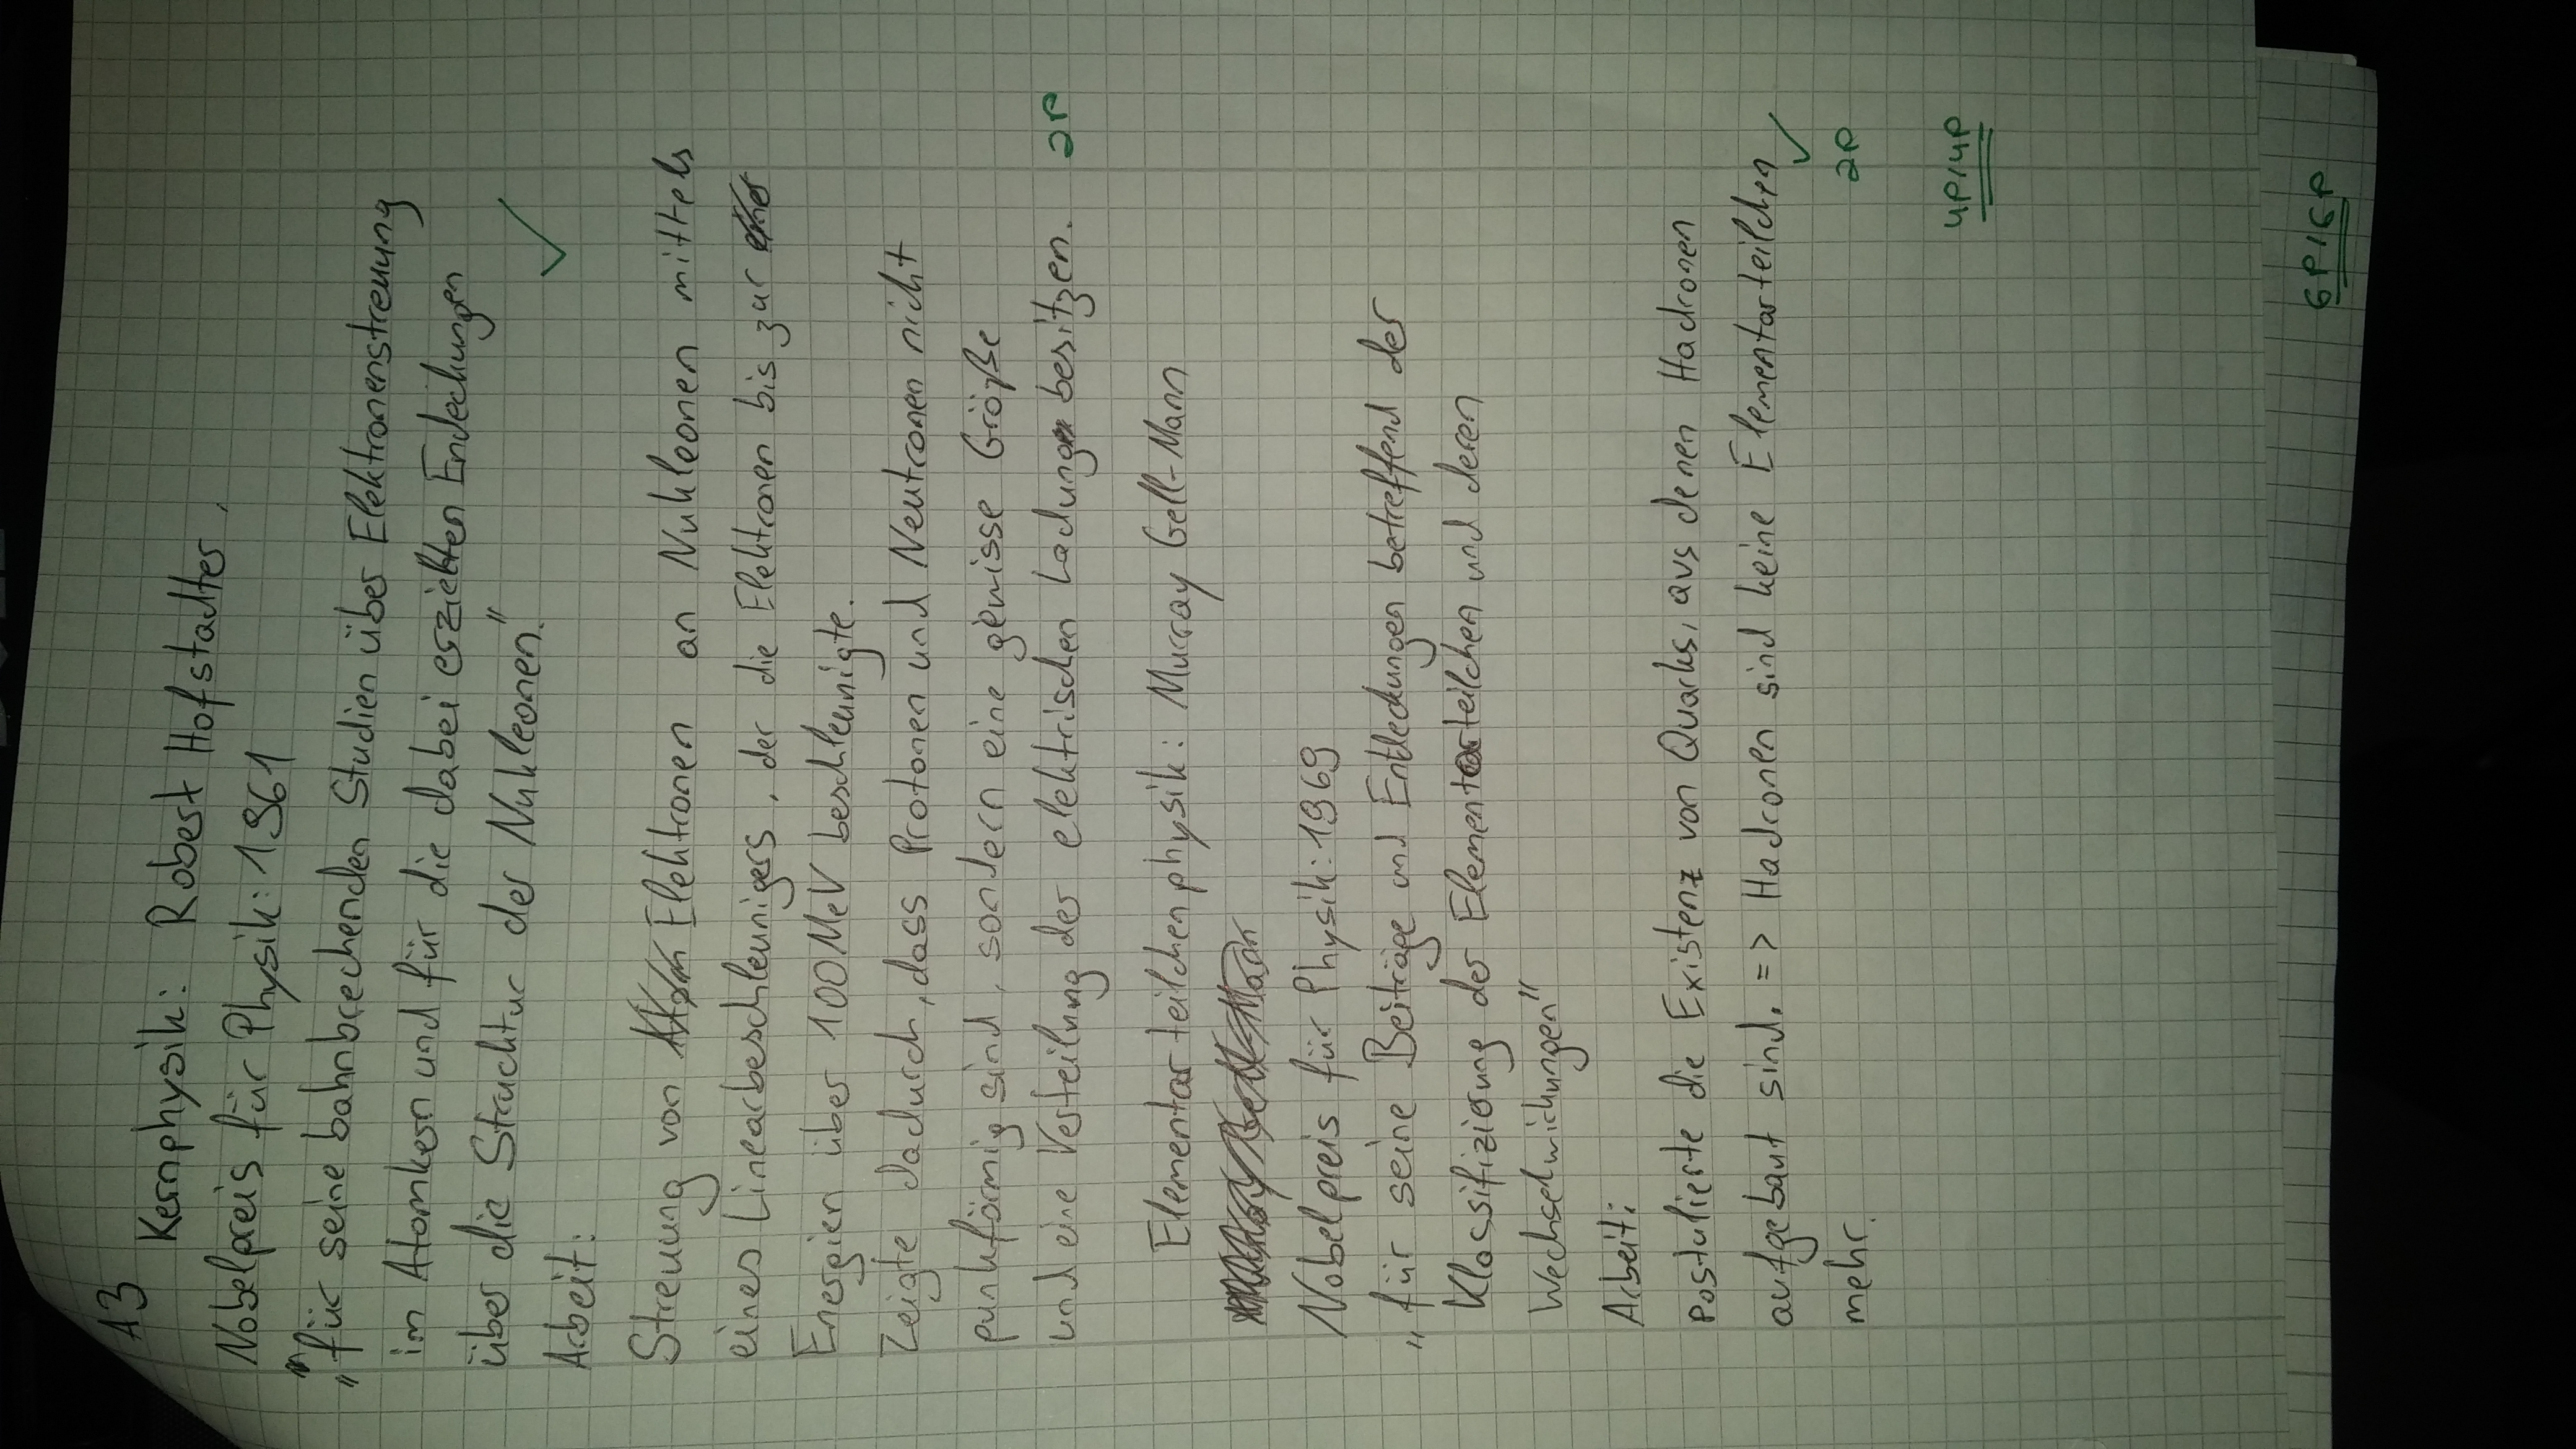 A3
Kernphysik: Robert Hofstadter,
Nobelpreis für Physik: 1961
„für seine bahnbrechenden Studien über Elektronenstreuung
im Atomkern und für die dabei erzielten Endeckungen
über die Strucktur der Nukleonen."
Arbeit:
Streuung von Elektronen an Nukleonen mittels
eines Linearbeschleunigers, der die Elektronen bis zur
Energien über 100 MeV beschleunigte.
Zeigte dadurch, dass Protonen und Neutronen nicht
punkförmig sind, sondern eine gewisse Größe
und eine Verteilung der elektrischen Ladung besitzen. 2P
Elementarteilchenphysik: Murray Gell-Mann
Nobelpreis für Physik: 1969
„für seine Beiträge und Entdeckungen betreffend der
Klassifizierung der Elementarteilchen und deren
Wechselwirkungen"
Arbeit:
postulierte die Existenz von Quarks, aus denen Hadronen
aufgebaut sind. => Hadronen sind keine Elementarteilchen
mehr. 2P
4P/4P
6P/6P